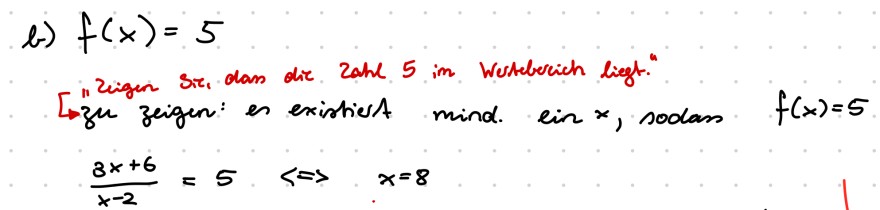 b) f(x) = 5
„Zeigen Sie, dass die Zahl 5 im Wertebereich liegt."
zu zeigen: es existiert mind. ein x, sodass f(x) = 5
3x+6 / x-2 = 5 <=> x = 8